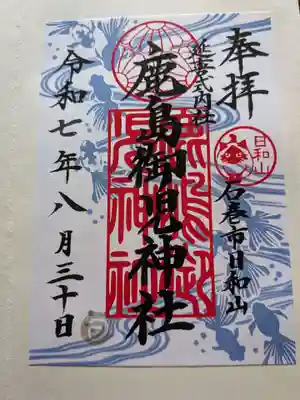 奉拝
日和山
石巻市日和山
延喜式内社
鹿島御児神社
令和七年八月三十日